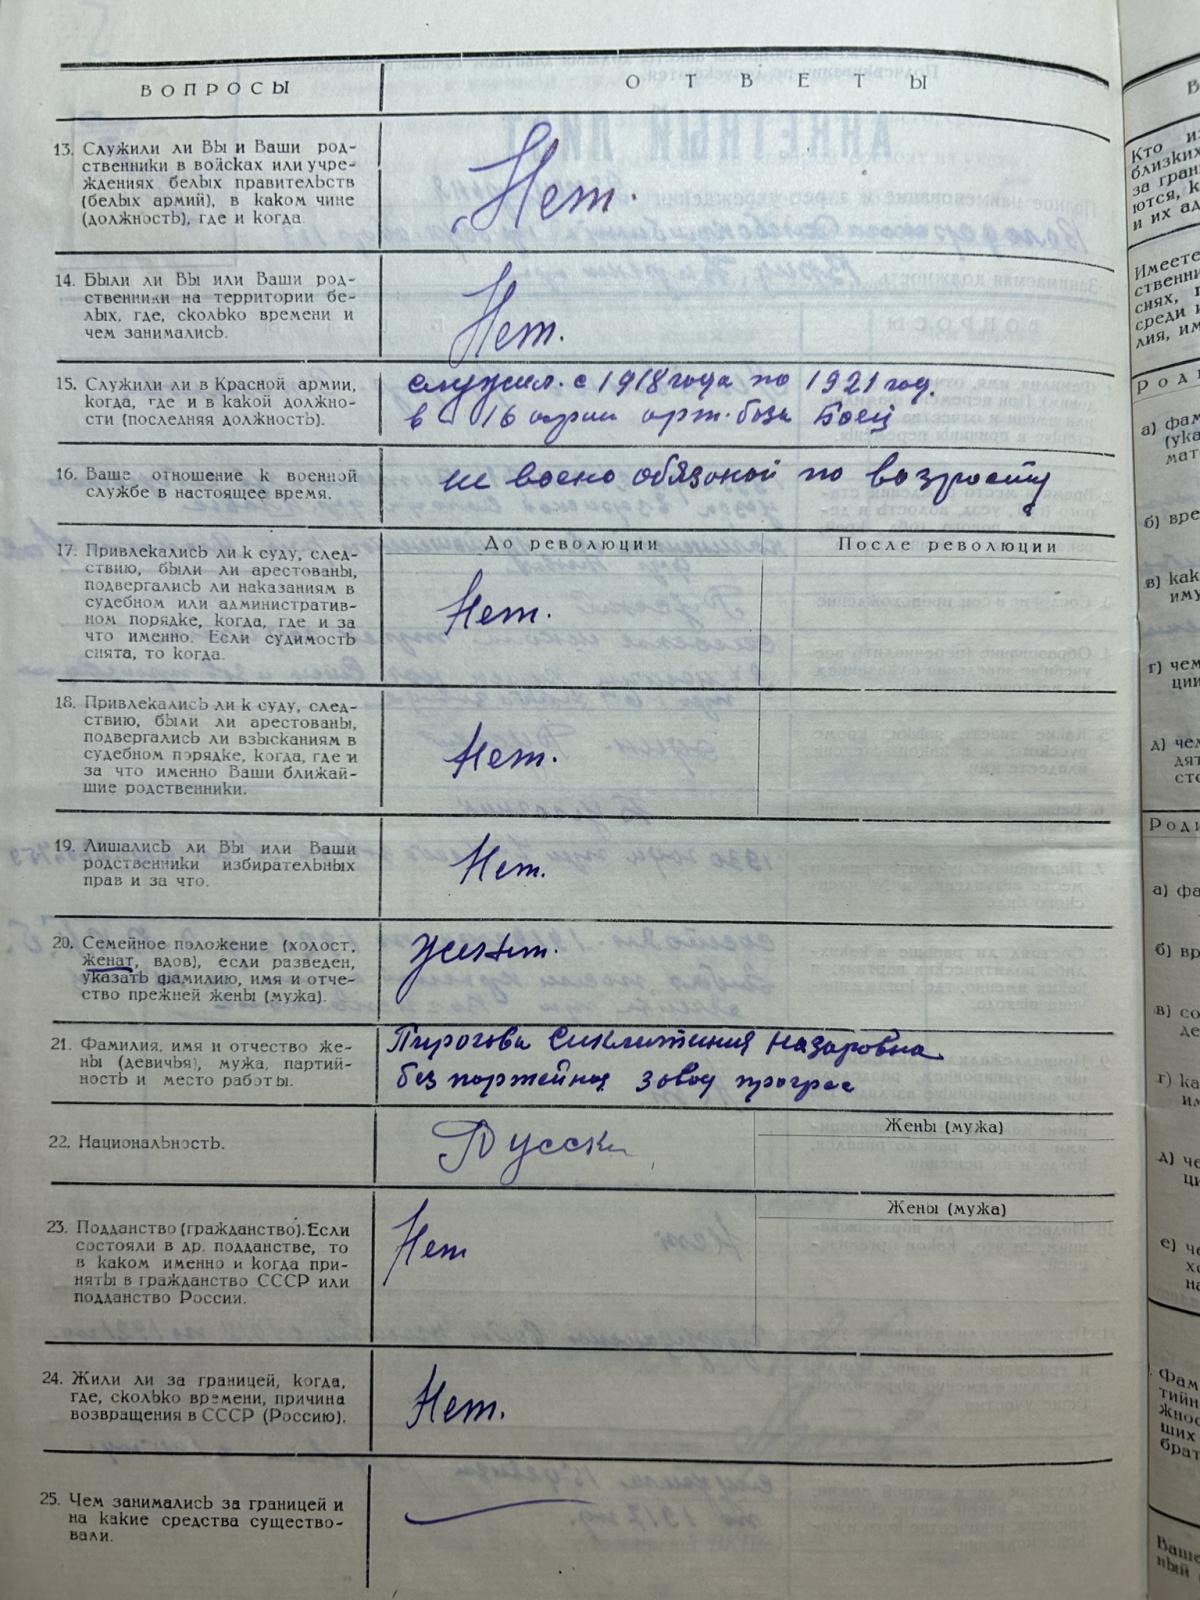 ВОПРОСЫ
ОТВЕТЫ
13. Служили ли Вы и Ваши род-
ственники в войсках или учре-
ждениях белых правительств
(белых армий), в каком чине
(должность), где и когда.
Нет.
14. Были ли Вы или Ваши род-
ственники на территории бе-
лых, где, сколько времени и
чем занимались.
Нет.
15. Служили ли в Красной армии,
когда, где и в какой должно-
сти (последняя должность).
служил. с 1918 года по 1921 год.
в 16 арми арт. база Боец
16. Ваше отношение к военной
службе в настоящее время.
не воено обязаной по возросту
17. Привлекались ли к суду, след-
ствию, были ли арестованы,
подвергались ли наказаниям в
судебном или административ-
ном порядке, когда, где и за
что именно. Если судимость
снята, то когда.
До революции
После революции
Нет.
18. Привлекались ли к суду, след-
ствию, были ли арестованы,
подвергались ли взысканиям в
судебном порядке, когда, где и
за что именно Ваши ближай-
шие родственники.
Нет.
19. Лишались ли Вы или Ваши
родственники избирательных
прав и за что.
Нет.
20. Семейное положение (холост,
женат, вдов), если разведен,
указать фамилию, имя и отче-
ство прежней жены (мужа).
женат.
21. Фамилия, имя и отчество же-
ны (девичья), мужа, партий-
ность и место работы.
Пирогова Сиклитиния Назаровна
без партейная завод прогрес
22. Национальность.
Русски
Жены (мужа)
23. Подданство (гражданство). Если
состояли в др. подданстве, то
в каком именно и когда при-
няты в гражданство СССР или
подданство России.
Нет
Жены (мужа)
24. Жили ли за границей, когда,
где, сколько времени, причина
возвращения в СССР (Россию).
Нет.
25. Чем занимались за границей и
на какие средства существо-
вали.
Кто
близких
за гран
ются, к
и их ад
Имеете
ственни
сиях, г
среди
лия, им
Род
а) фам
(ука
мат
б) вре
в) как
иму
г) чем
ции
д) чем
дят
сто
Роди
а) фа
б) вр
в) со
де
г) ка
им
д) че
ци
е) че
хо
на
Фам
тийн
жнос
ших
брат
Ваше
ный